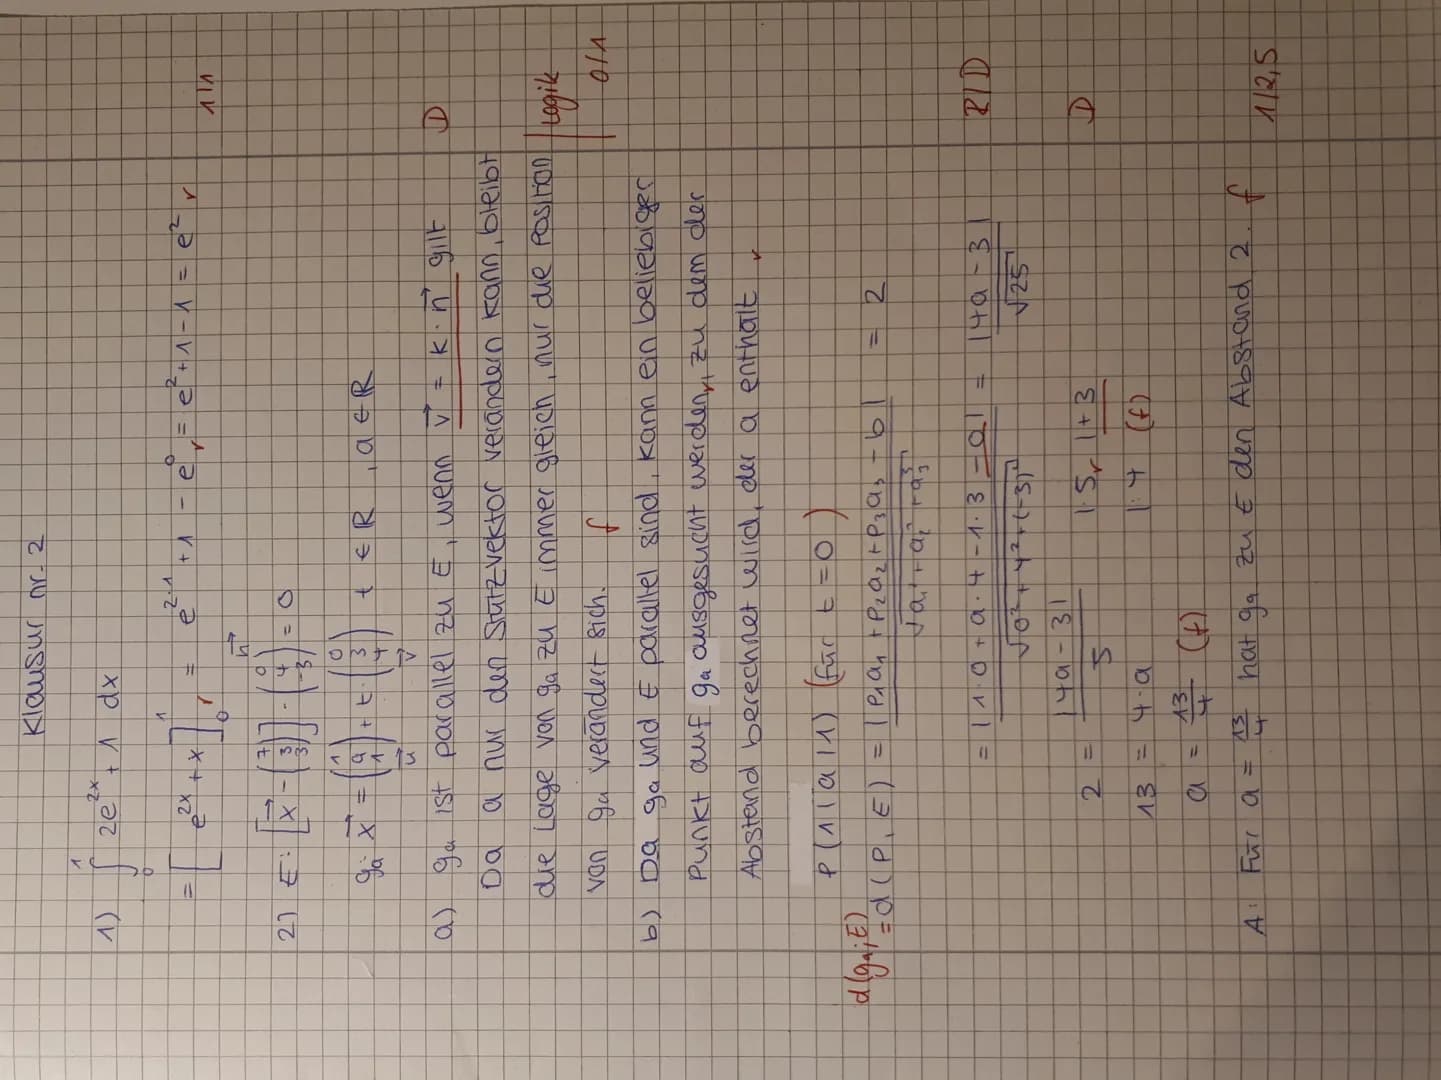 Klausur nr. 2
1) ∫₀¹ 2e^{2x} + 1 dx
= [e^{2x} + x]₀¹ r = e^{2·1} + 1 - e⁰ r = e² + 1 - 1 = e² r 1/1
2) E: [x⃗ - (7 3 3)] · (0 4 -3) = 0 n⃗
gₐ: x⃗ = (1 a 1) + t · (0 3 4) t ∈ ℝ, a ∈ ℝ
u⃗ v⃗
a) gₐ ist parallel zu E, wenn v⃗ = k · n⃗ gilt D
Da a nur den Stützvektor verändern kann, bleibt
die Lage von gₐ zu E immer gleich, nur die Position Logik
von gₐ verändert sich. f 0/1
b) Da gₐ und E parallel sind, kann ein beliebiger
Punkt auf gₐ ausgesucht werden, r zu dem der
Abstand berechnet wird, der a enthält r
P(1|a|1) (für t=0)
d(gₐ;E)
= d(P, E) = |p₁a₁ + p₂a₂ + p₃a₃ - b| / √a₁² + a₂² + a₃² = 2
= |1·0 + a·4 - 1·3 - 0| / √0² + 4² + (-3)² = |4a - 3| / √25 R/D
2 = |4a - 3| / 5 |·5 r |+3 D
13 = 4·a |:4 (f)
a = 13/4 (f)
A: Für a = 13/4 hat gₐ zu E den Abstand 2. f 1/2,5